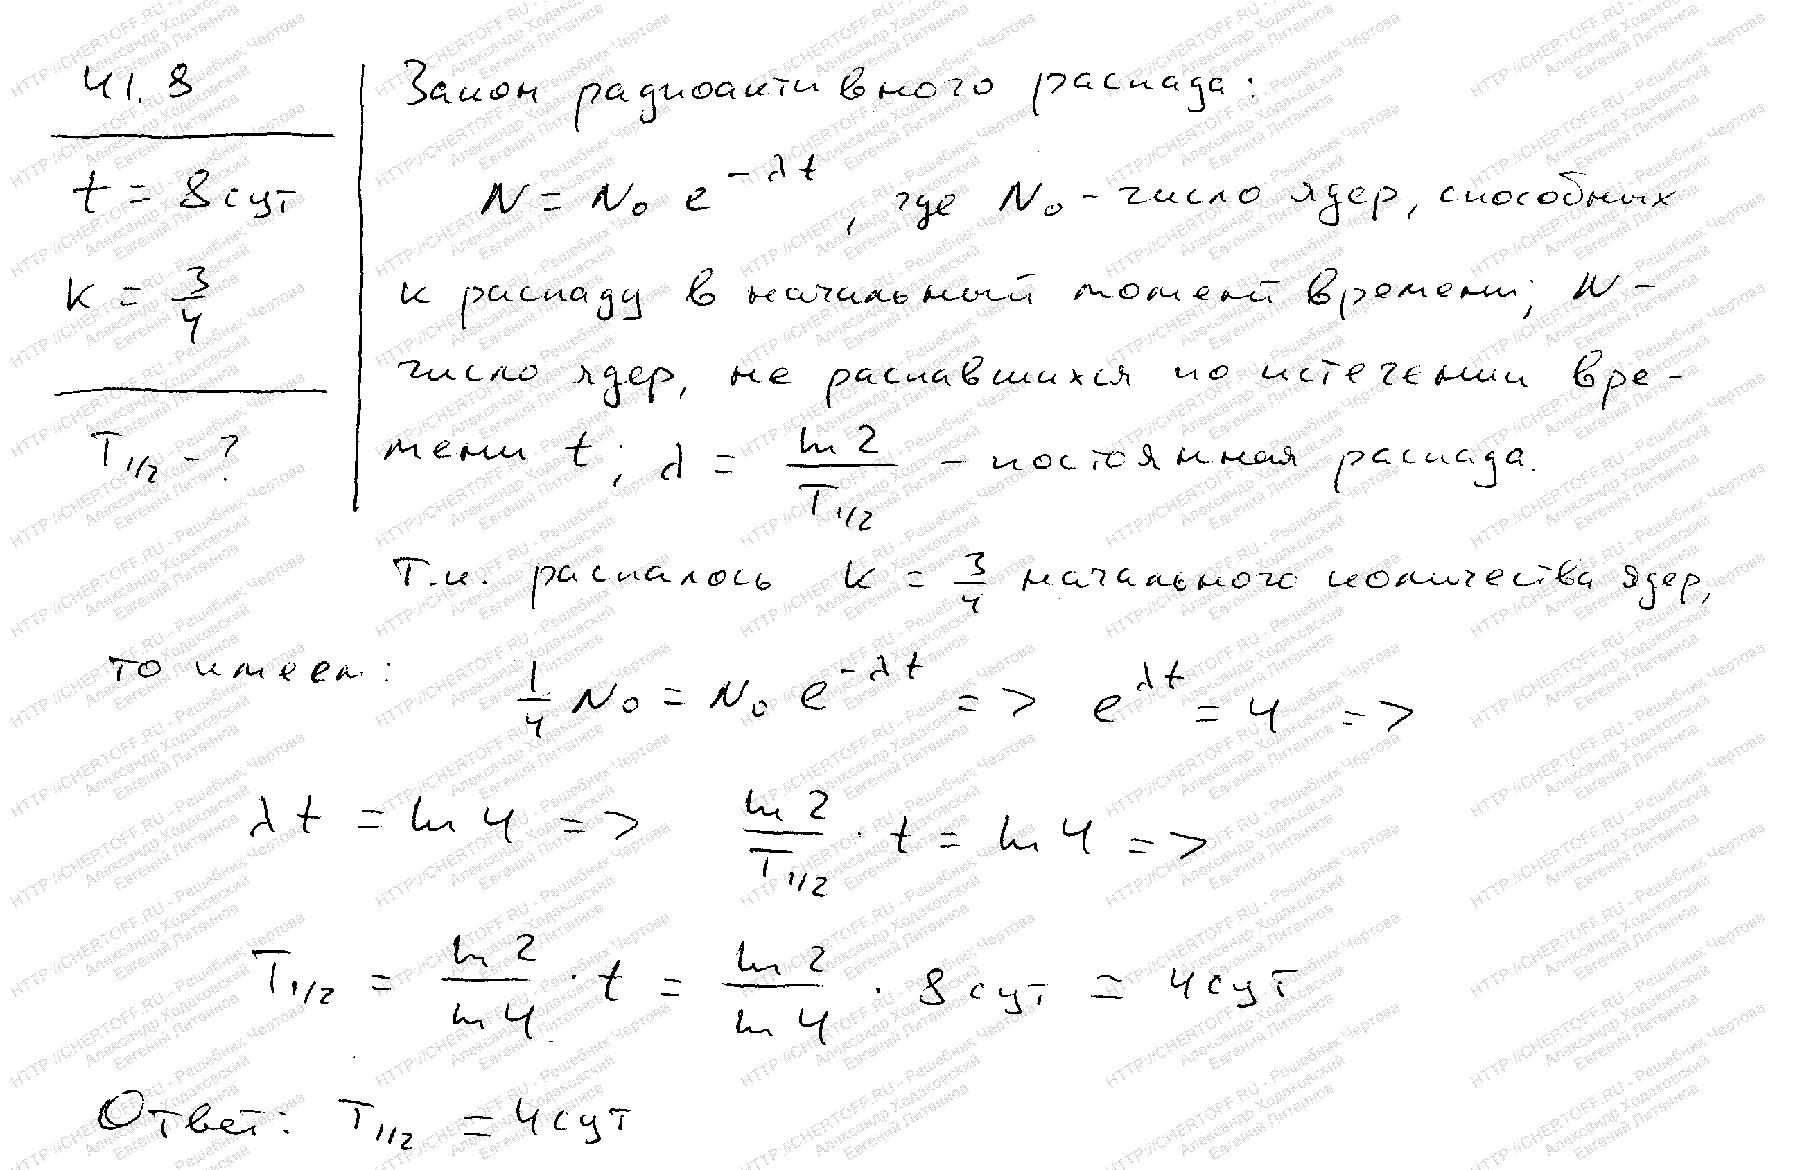 41.8
t = 8 сут
K = 3/4
T1/2 - ?
Закон радиоактивного распада:
N = N₀ e^(-λt), где N₀ - число ядер, способных
к распаду в начальный момент времени; N -
число ядер, не распавшихся по истечении вре-
мени t; λ = ln 2 / T1/2 - постоянная распада.
Т.к. распалось K = 3/4 начального количества ядер,
то имеем: 1/4 N₀ = N₀ e^(-λt) => e^(λt) = 4 =>
λt = ln 4 => ln 2 / T1/2 · t = ln 4 =>
T1/2 = ln 2 / ln 4 · t = ln 2 / ln 4 · 8 сут = 4 сут
Ответ: T1/2 = 4 сут
HTTP://CHERTOFF.RU - Решебник Чертова
Александр Ходаковский
Евгений Литвинов